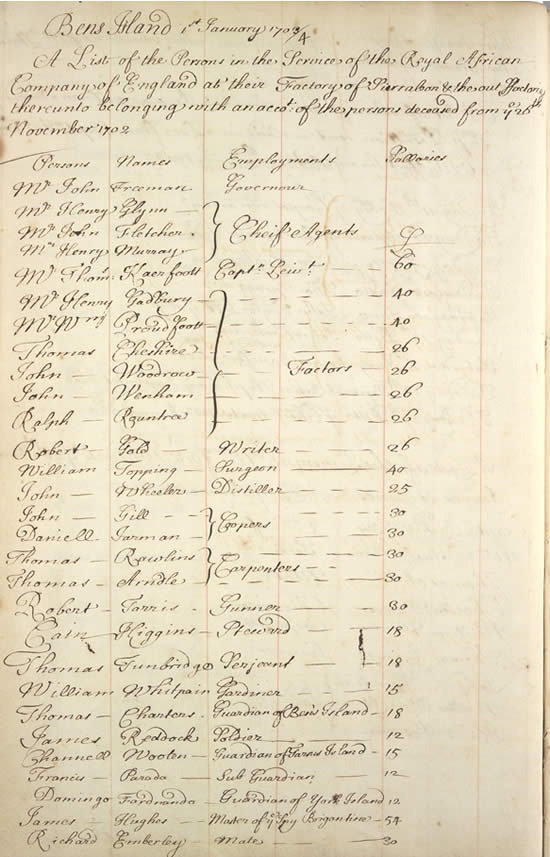 Bens Island 1st January 1703/4
A List of the Persons in the Service of the Royal African
Company of England at their Factory of Sierraloon & the out Factorys
thereunto belonging with an accot. of the persons deceased from ye 26th
November 1702
Persons Names Employments Sallaries
Mr John Freeman Governour
Mr Henry Glynn
Mr John Fletcher Cheif Agents
Mr Henry Murray £
Mr Thom: Kaerfoott Captn Leiwt. 60
Mr Henry Gadbury 40
Mr Wm Proudfoott 40
Thomas Cheshire 26
John Woodrow Factors 26
John Wenham 26
Ralph Rountree 26
Robert Gold Writer 26
William Topping Surgeon 40
John Wheeler Distiller 25
John Gill Coopers 30
Daniell Jarman 30
Thomas Rawlins Carpenters 30
Thomas Arndle 30
Robert Farris Gunner 30
Cain Higgins Steward 18
Thomas Tunbridge Serjeant 18
William Whitpain Gardiner 15
Thomas Charters Guardian of Bens Island 18
James Reddock Soldier 12
Channell Wooten Guardian of Tarsus Island 15
Francis Parada Sub Guardian 12
Domingo Fardnando Guardian of York Island 12
James Hughes Master of ye Spy Brigantine 54
Richard Emberley Mate 30